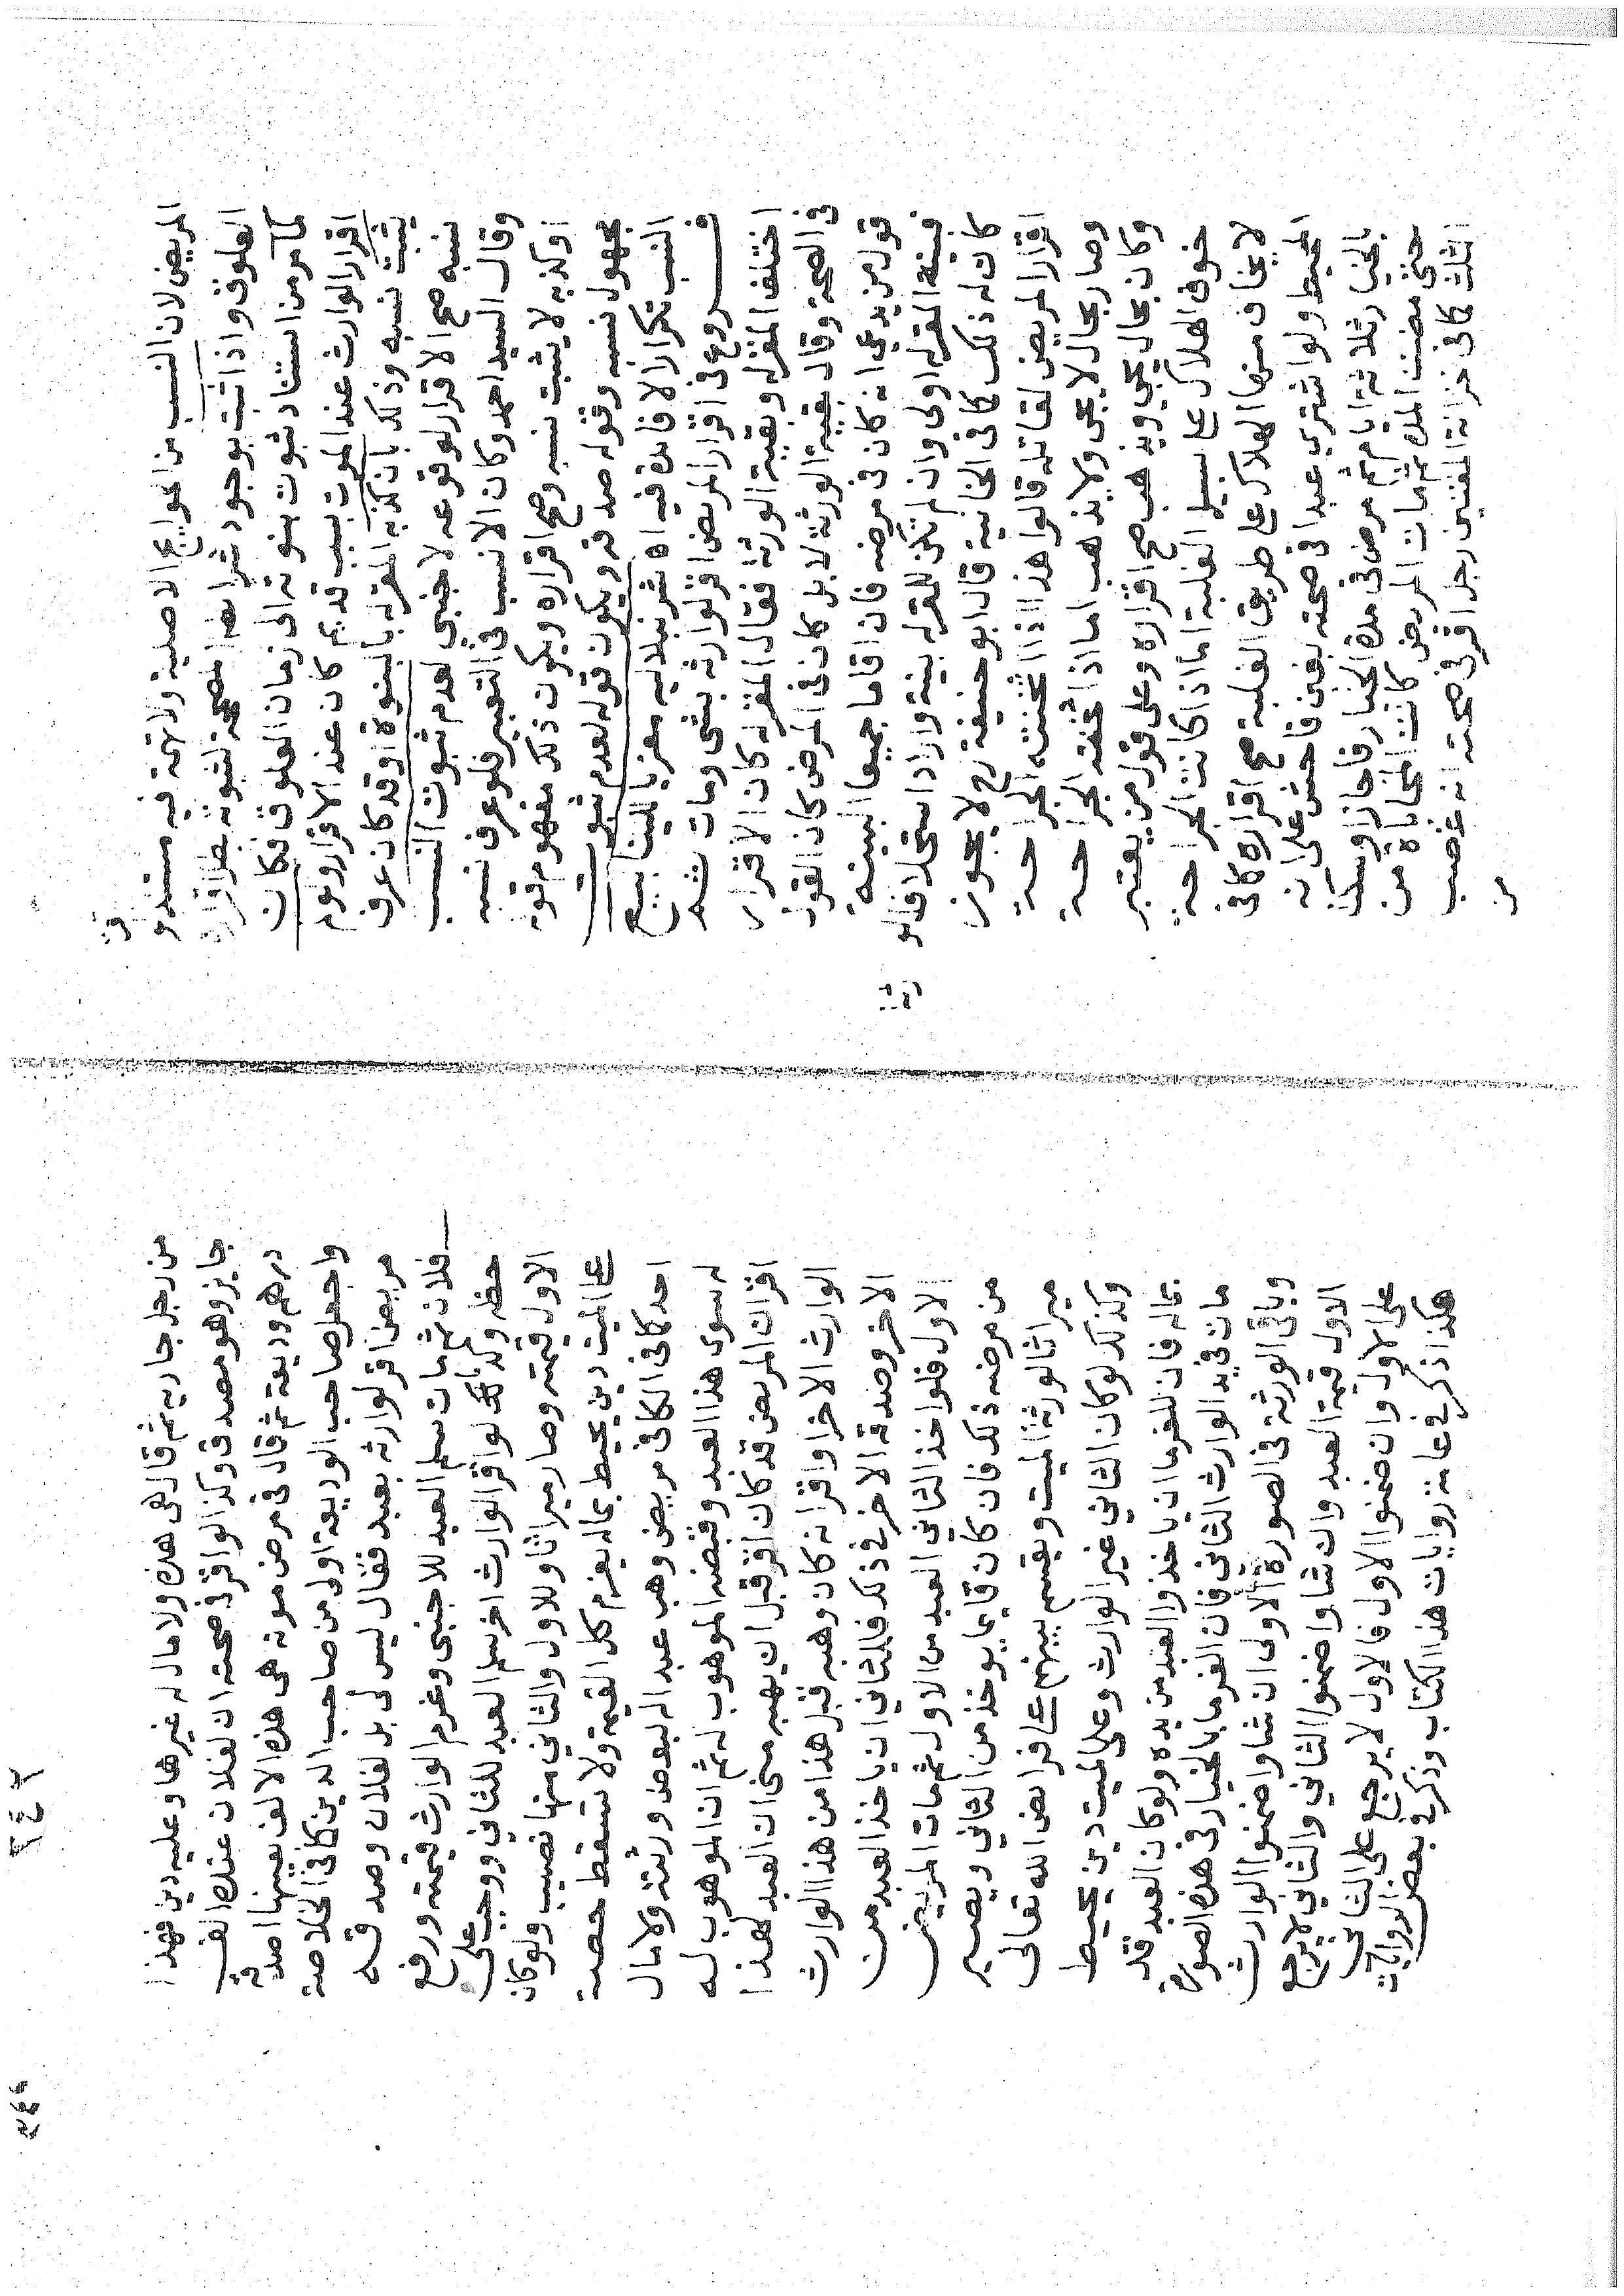 المريض لان النسب من الحوايج الاصلية ولا تهمة فيه مستند لو
قت
العلوق واذا ثبت بوجود شرايطه المصححة لثبوته بطل اقراره
كما مر من استناد ثبوت بنوته الى زمان العلوق فكان
اقرار الوارث عند الموت بسبب قديم كان عند الاقرار ولو لم
يثبت نسبه وذلك بان كذبه المقر له بالبنوة او قد كان عرف
نسبه صح الاقرار لوقوعه لاجنبي لعدم ثبوت النسب
وقال السيد احمد وكان الانسب في التعبير فلو عرف نسبه
او كذبه لا يثبت نسبه وصح اقراره ويكون ذلك مفهوم قوله
مجهول نسبه وقوله صدقه ويكون قوله لعدم ثبوت
النسب تكرارا لا فايدة فيه اه شرنبلاليه معزيا لليناابيع
فروع في اقرار المريض اقر لوارثه بشى ومات ثم
اختلف المقر له وبقية الورثة فقال المقر له كان الاقرار
في الصحة وقال بقية الورثة لا بل كان في المرض كان القول
قول من يدعي انه كان في مرضه فان اقاما جميعا البينة
فبينة المقر له اولى وان لم تكن للمقر له بينة واراد استحلاف الو
رثة
كان له ذلك كما في الخانية قال ابو حنيفة رح لا يجوز
اقرار المريض لقاتله قالوا هذا اذا اثخنته الجراحة
وصار بحال لا يجي ولا يذهب اما اذا اثخنته الجراحة
وكان بحال يجي ويذهب صح اقراره وعلى قول من يعتبر
خوف الهلاك على سبيل الغلبة اما اذا كانت الجراحة
لا يخاف منها الهلاك على طريق الغلبة صح اقراره كما في
المحيط ولو اشترى عبدا في صحته بغبن فاحش على انه
بالخيار ثلاثة ايام ثم مرض في مدة الخيار فاجاز او سكت
حتى مضت المدة ثم مات المريض كانت المحاباة من
الثلث كما في خزانة المفتين رجل اقر في صحته انه غصب
من
من رجل جارية ثم قال هي هذه ولا مال له غيرها وعليه دين فهذا
جايز وهو مصدق وكذا لو اقر في صحته ان لفلان عنده الف
درهم وديعة ثم قال في مرض موته هي هذه الالف بعينها اصدقه
واجعل صاحب الوديعة اولى من صاحب الدين كما في الخلاصة
مريض اقر لوارثه بعبد فقال ليس لي بل لفلان وصدقه
فلان ثم مات سلم العبد للاجنبى وغرم الوارث قيمته ورفع
حظه وكذلك لو اقر الوارث اخر سلم العبد للثاني ووجب على
الاول قيمته وصار ميراثا وللاول والثاني منها نصيب ولو كان
على الميت دين يحيط بماله يغرم كل القيمة ولا تسقط حصة
احد كما في الكافي مريض وهب عبدا له لبعض ورثته ولا مال
له سوى هذا العبد وقبضه الموهوب له ثم ان الموهوب له
اقر ان المريض قد كان اقر قبل ان يهبه منى ان العبد لهذا
الوارث الاخر او اقر انه كان وهبه قبل هذا من هذا الوارث
الاخر وصدقه الاخر في ذلك فللثاني ان ياخذ العبد من
الاول فلو اخذ الثاني العبد من الاول ثم مات المريض
من مرضه ذلك فان كان قايما يوخذ من الثاني ويصير
ميراثا لورثة الميت ويقسم بينهم على فرايض الله تعالى
وكذلك لو كان الثاني غير الوارث وعلى الميت دين يحيط
بماله فان للغرما ان ياخذوا العبد من يده ولو كان العبد قد
مات في يد الوارث الثاني فان الغرما بالخيار في هذه الصورة
وباقي الورثة في الصورة الاولى ان شاوا ضمنوا الوارث
الاول قيمة العبد وان شاوا ضمنوا الثاني والثاني لا يرجع
على الاول وان ضمنوا الاول فالاول لا يرجع على الثاني
هكذا ذكر في عامة روايات هذا الكتاب وذكر في بعض الروايات
٢٤٢